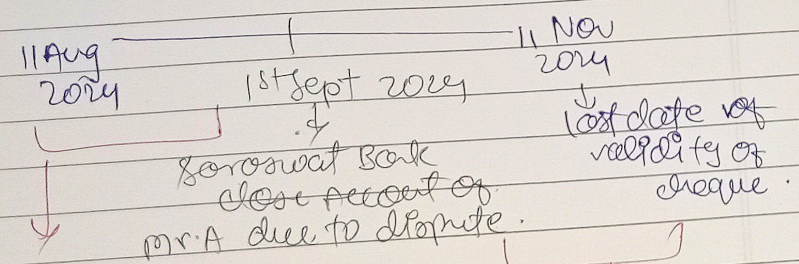 11 Aug
2024
1st Sept 2024
Saraswat Bank
close Account of
Mr. A due to dispute.
11 Nov
2024
last date of
validity of
cheque.